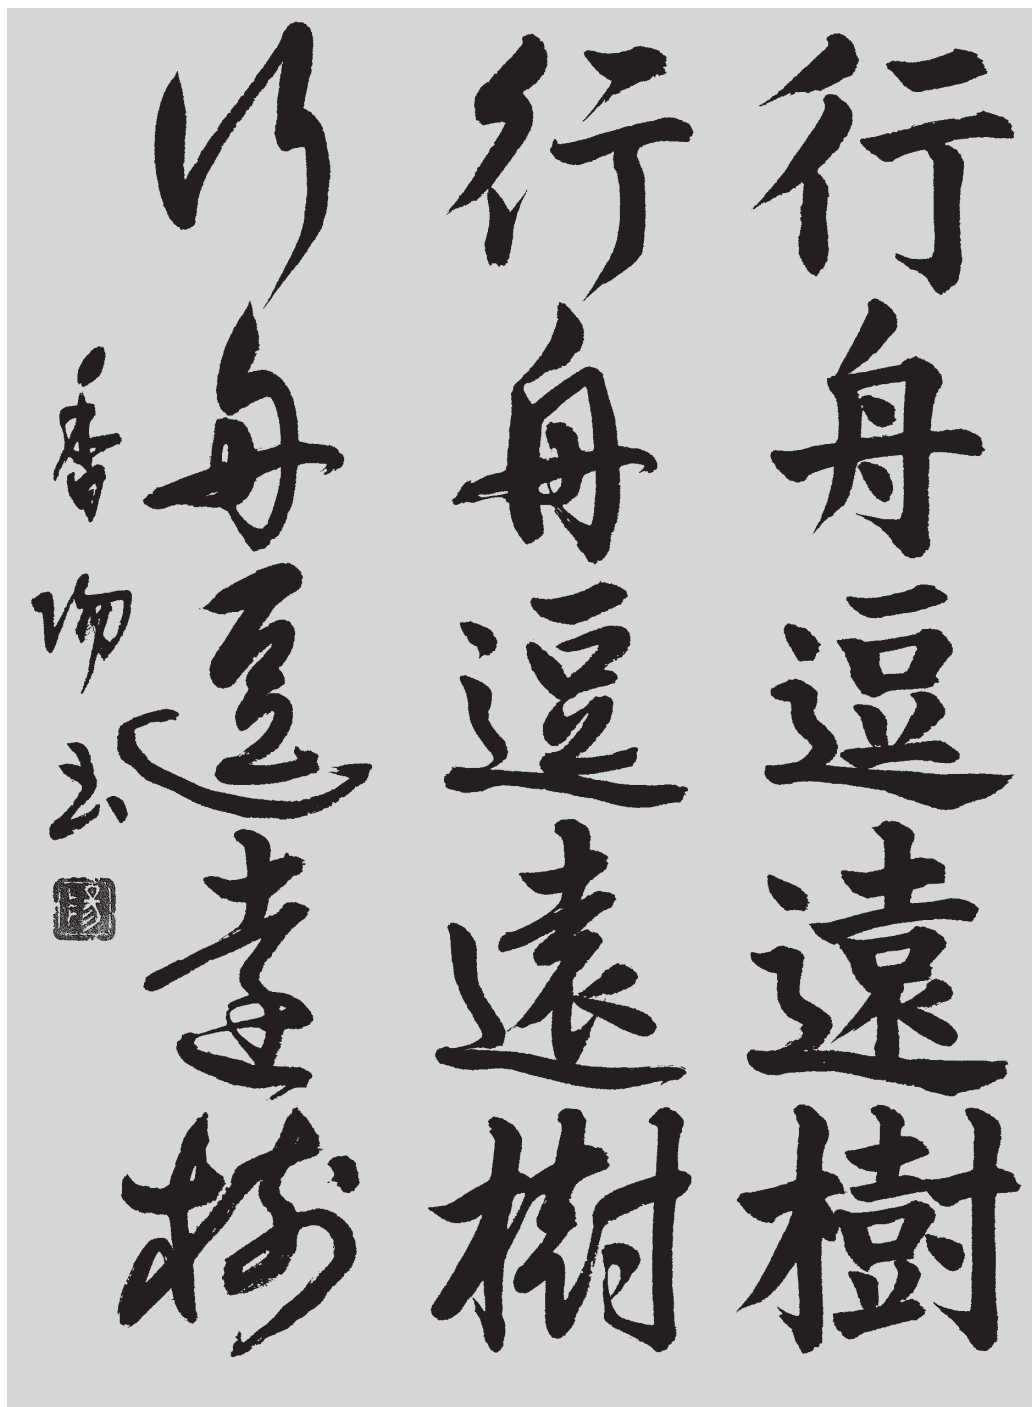 行舟逗遠樹
行舟逗遠樹
行舟逗遠樹
香